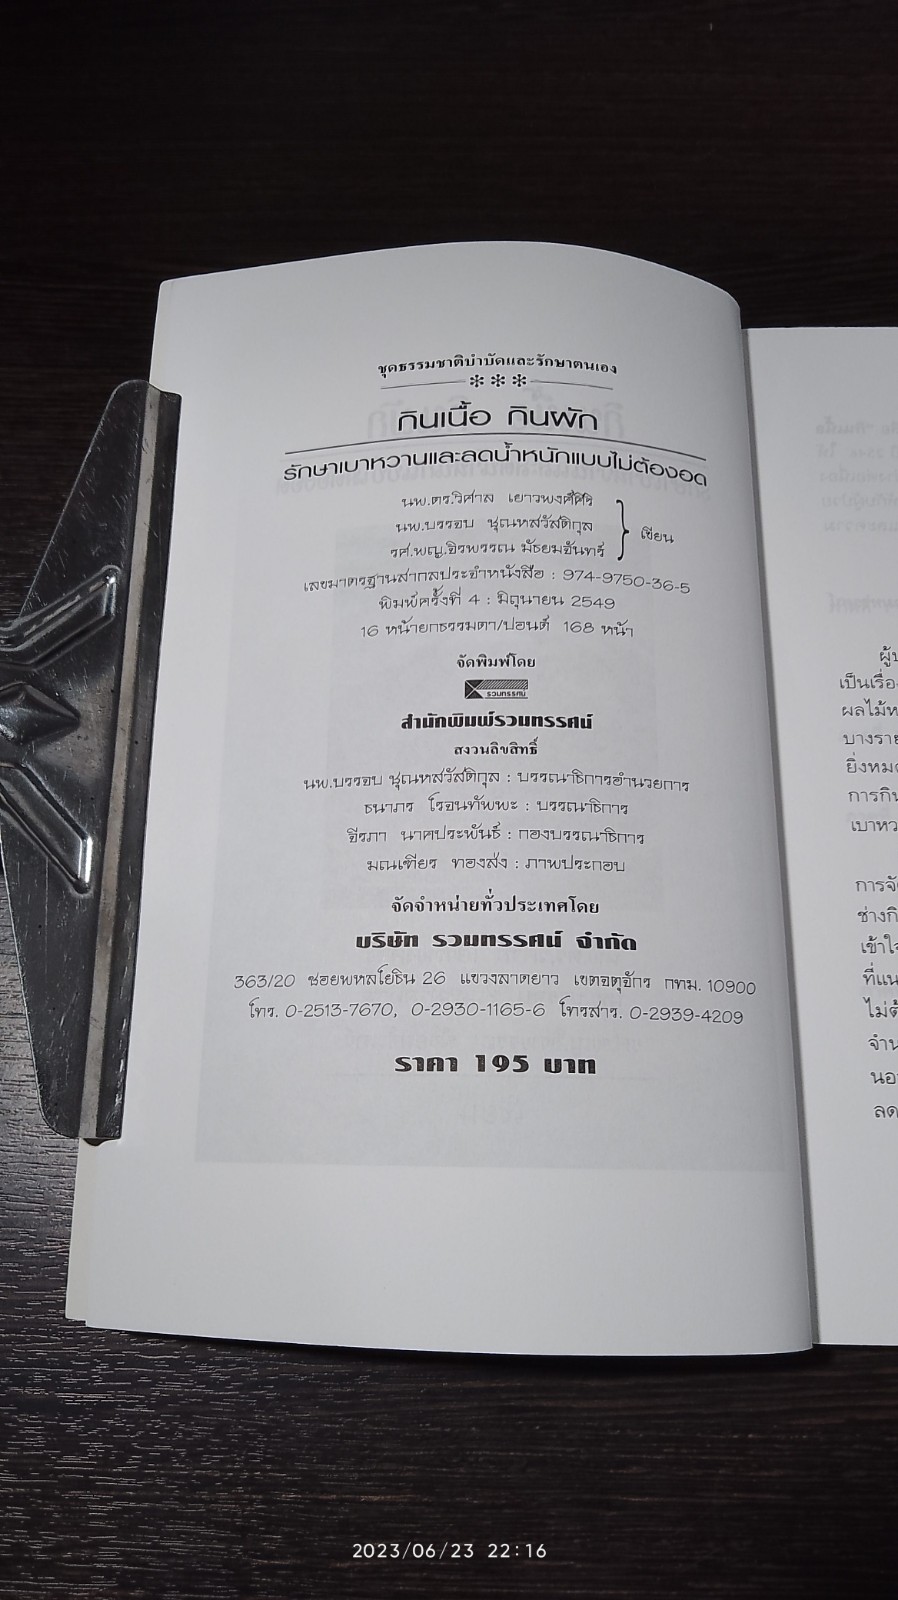 ชุดธรรมชาติบำบัดและรักษาตนเอง
***
กินเนื้อ กินผัก
รักษาเบาหวานและลดน้ำหนักแบบไม่ต้องอด
นพ.ดร.วิศาล เยาวพงศ์ศิริ
นพ.บรรจบ ชุณหสวัสดิกุล
รศ.พญ.จิรพรรณ มัธยมจันทร์
} เขียน
เลขมาตรฐานสากลประจำหนังสือ : 974-9750-36-5
พิมพ์ครั้งที่ 4 : มิถุนายน 2549
16 หน้ายกธรรมดา/ปอนด์ 168 หน้า
จัดพิมพ์โดย
รวมทรรศน์
สำนักพิมพ์รวมทรรศน์
สงวนลิขสิทธิ์
นพ.บรรจบ ชุณหสวัสดิกุล : บรรณาธิการอำนวยการ
ธนาภร โรจนทัพพะ : บรรณาธิการ
ธีรภา นาคประพันธ์ : กองบรรณาธิการ
มณเฑียร ทองส่ง : ภาพประกอบ
จัดจำหน่ายทั่วประเทศโดย
บริษัท รวมทรรศน์ จำกัด
363/20 ซอยพหลโยธิน 26 แขวงลาดยาว เขตจตุจักร กทม. 10900
โทร. 0-2513-7670, 0-2930-1165-6 โทรสาร. 0-2939-4209
ราคา 195 บาท
เป็นเรื่อง
บางราย
ยิ่งหมด
การกิน
เบาหว
การจั
ช่างกิ
เข้าใจ
ที่แน
ไม่ต้
จำน
นอ
ลด
2023/06/23 22:16